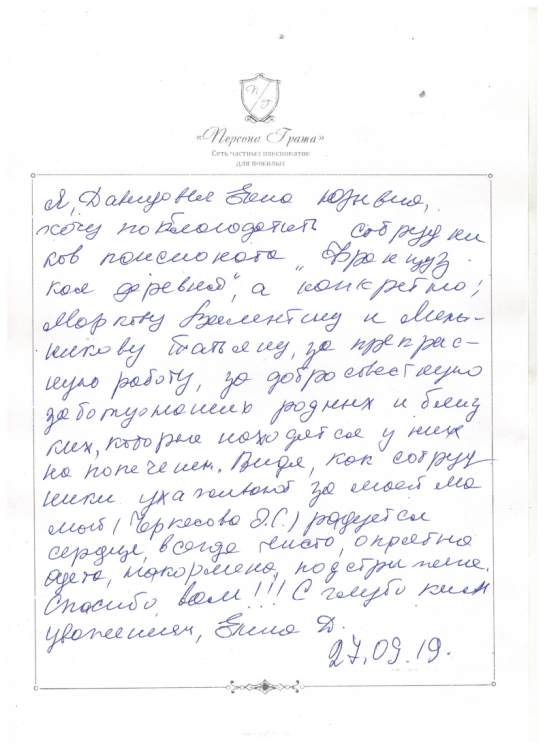 П/Г
«Персона Гража»
Сеть частных пансионатов
для пожилых
Я, Давыдовня Елена
хочу поблагодарить сотрудни
ков пансионата „Француз
кая деревня", а конкретно:
Моркву Валентину и Мель-
никову Татьяну, за прекрас-
ную работу, за добросовестную
заботу о наших родных и близ
ких, которые находятся у них
на попечении. Видя, как сотруд
ники ухаживают за моей ма
мой (Черкесова Э.С.) радуется
сердце, всегда чисто, опрятно
одета, накормлена, подстрижена.
Спасибо вам!!! С глубо ким
уважением, Елена Д.
27.09.19.